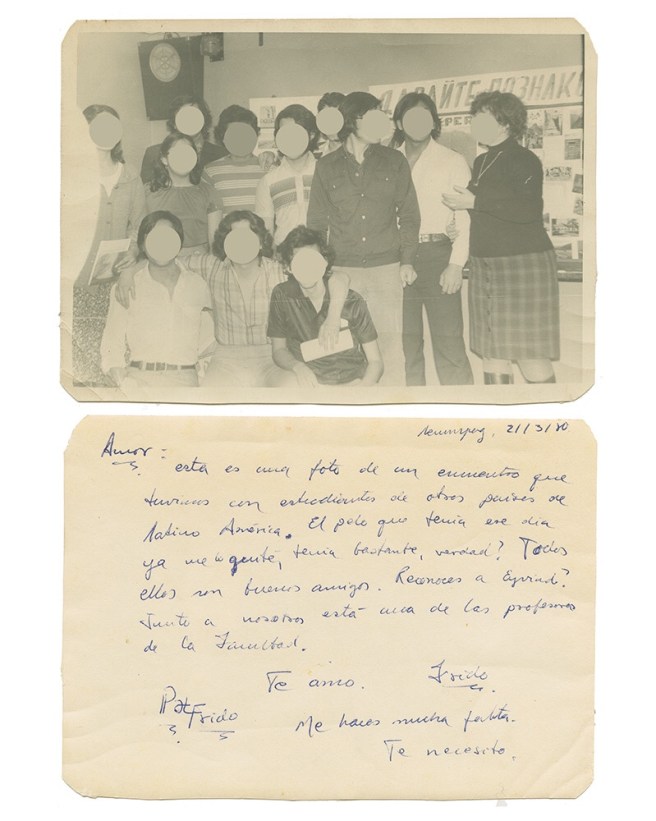 ДАВАЙТЕ-ПОЗНАКО
21/3/80
Amor:
esta es una foto de un encuentro que
tuvimos con estudiantes de otros países de
latino América. El pelo que tenía ese día
ya me lo tenía bastante, verdad? Todos
ellos son buenos amigos. Reconoces a Eyvind?
Junto a nosotros está una de las profesoras
de la Facultad.
Te amo. Frido
Frido Me haces mucha falta.
Te necesito.